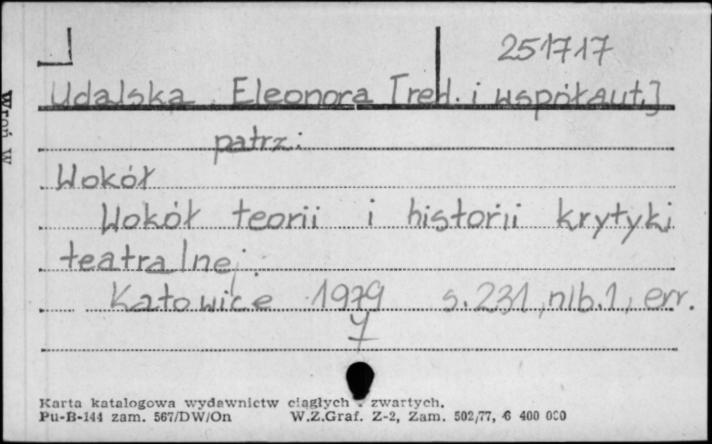 251717
Udalska Eleonora [red. i współaut.]
patrz:
Wokół
Wokół teorii i historii krytyki
teatralnej.
Katowice 1979 s. 231, nlb. 1, err.
Karta katalogowa wydawnictw ciągłych i zwartych.
Pu-B-144 zam. 567/DW/On W.Z.Graf. Z-2, Zam. 502/77, 6 400 000